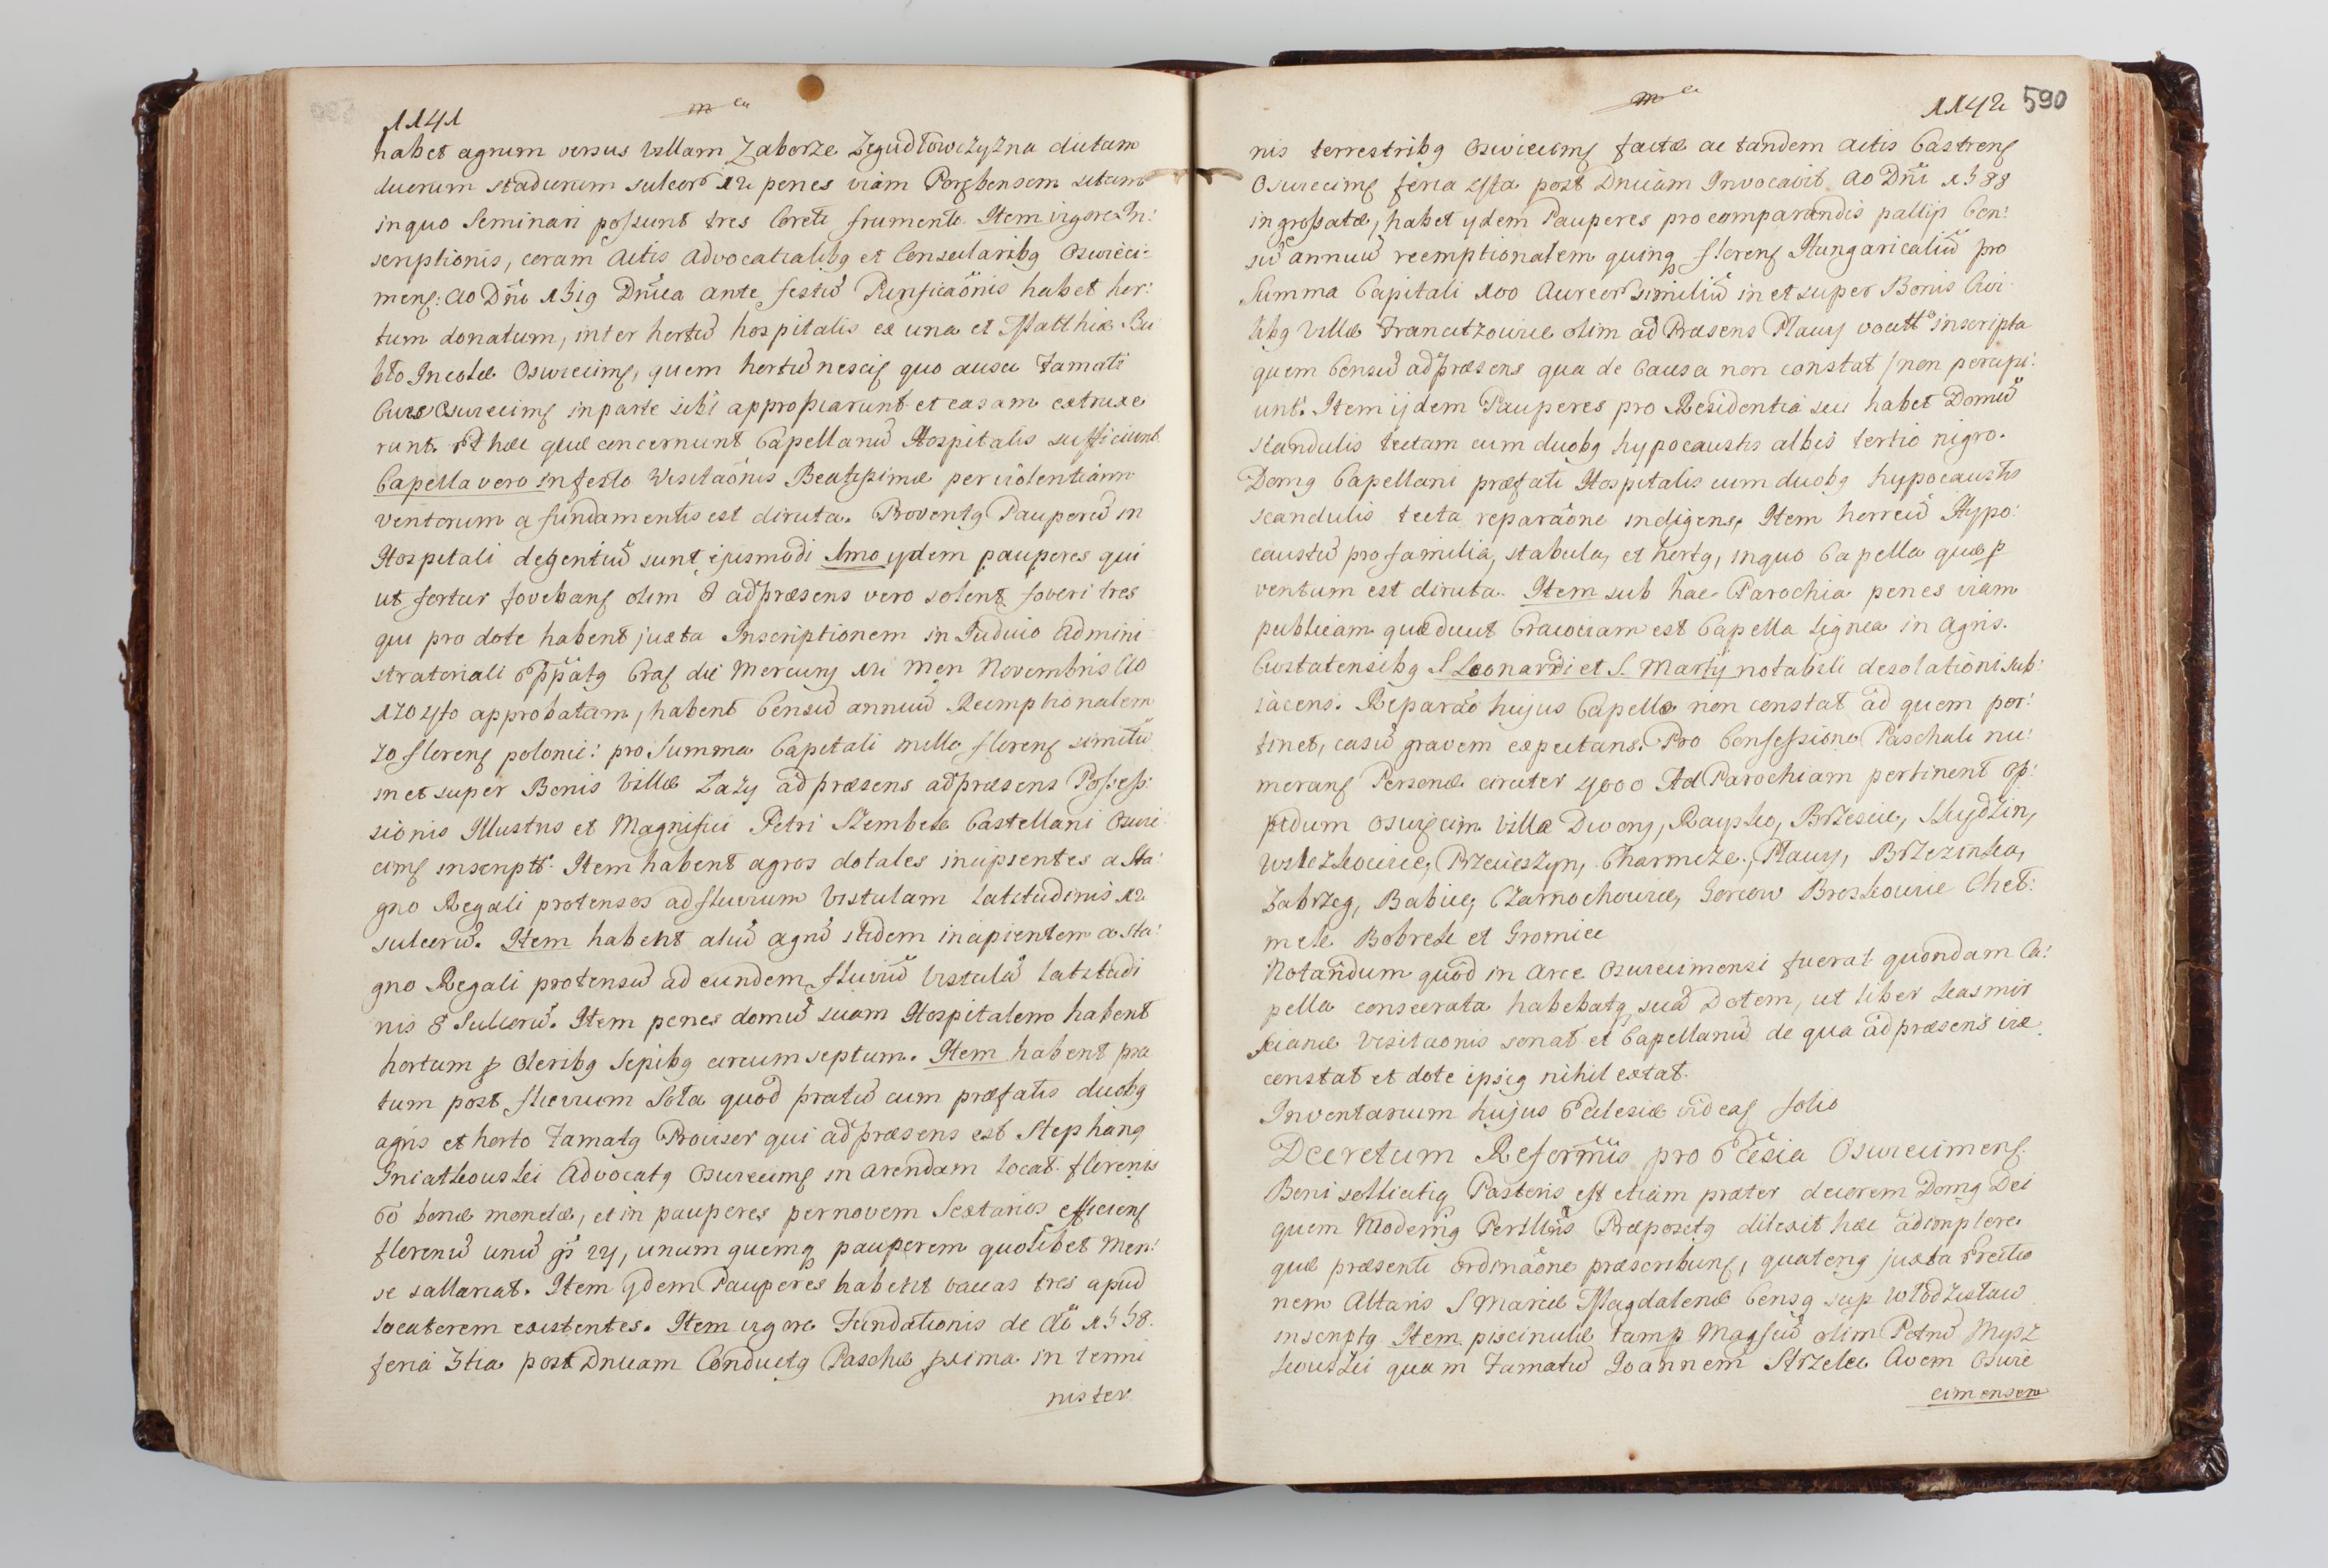 1141
m ca
habet agrum versus Villam Zaborze Zegudłowczyzna dictam
duorum stadiorum sulcor 12 penes viam Porębensem sitam
in quo Seminari possunt tres Coreti frumenti. Item vigore In:
scriptionis, coram Actis Advocatialibq et Consularibq Oswieci:
mens: Ao Dni 1519 Dnica ante festū Purificaõnis habet hor:
tum donatum, inter hortū hospitalis ex una et Matthiæ Bu
bło Incolæ Oswiecims, quem hortū nescis quo ausu Famati
Cives Oswiecims in parte sibi appropiarunt et casam extruxe
runt. Et hæc quæ concernunt Capellanū Hospitalis sufficiunt.
Capella vero in festo Visitaõnis Beatissimæ per violentiam
ventorum a fundamentis est diruta. Proventq Pauperū in
Hospitali degentiū sunt ejusmodi 1mo ijdem pauperes qui
ut fertur fovebans olim 8 ad præsens vero solent foveri tres
qui pro dote habent juxta Inscriptionem in Judicio Admini
stratoriali Eppatq Crac die Mercurij 12 Men Novembris Ao
1704to approbatam, habent Censū annuū Reemptionalem
70 florens polonic: pro Summa Capitali mille florens similiū
in et super Bonis Villæ Łazy ad præsens ad præsens Possess:
sionis Illustris et Magnifici Petri Szembek Castellani Oswie
cims inscript: Item habent agros dotales incipientes a Sta:
gno Regali protensos ad fluvium Vistulam latitudinis 12
sulcorū. Item habent aliū agrū itidem incipientem a Sta:
gno Regali protensū ad eundem fluviū Vistulā latitudi
nis 8 Sulcorū. Item penes domū suam Hospitalem habent
hortum p Oleribq Sepibq circumseptum. Item habent pra
tum post fluvium Sola quod pratū cum præfatis duobq
agris et horto Famatq Proviser qui ad præsens est Stephanq
Gniatkowski Advocatq Oswiecims in arendam locat florenis
60 bonæ monetæ, et in pauperes per novem Sextarios efficiens
florenū unū gr 24, unum quemq pauperem quolibet Men:
se sallariat. Item ijdem Pauperes habent vaccas tres apud
locatorem existentes. Item vigore Fundationis de Ao 1558.
feria 3tia post Dnicam Conductq Paschæ prima in termi
nister

m ca
1142 590
nis terrestribq Oswiecims factæ ac tandem Actis Castrens
Osviecims feria 4ta post Dnicam Invocavit Ao Dni 1588
ingrossatæ, habet ijdem Pauperes pro comparandis pallijs Cen:
sū annuū reemptionalem quinq florens Hungaricaliū pro
Summa Capitali 100 Aureor similiū in et super Bonis Civi
libq Villæ Franciszowice olim ad Præsens Plawy vocatt inscripta
quem Censū ad præsens qua de Causa non constat / non percipi:
unt. Item ijdem Pauperes pro Residentia sui habet Domū
scandulis tectam cum duobq hypocaustis albis tertio nigro.
Domq Capellani præfati Hospitalis cum duobq hypocaustis
scandulis tecta reparaõne indigens, Item horreū Hypo:
caustū pro familia, stabula, et hortq, in quo Capella quæ p
ventum est diruta. Item sub hac Parochia penes viam
publicam quæ ducit Cracoviam est Capella lignea in Agris.
Civitatensibq S Leonardi et S. Marij notabili desolationi sub:
iacens. Reparāo hujus Capellæ non constat ad quem per:
tinet, casū gravem expectans. Pro Confessione Paschali nu:
merans Personæ circiter 4000 Ad Parochiam pertinent Op:
pidum Oswiecim Villæ Dwory, Raysko, Brzescie, Skydzin,
Wilczkowice, Przecieszyn, Charmęze, Plawy, Brzezinka,
Zabrzeg, Babice, Czarnochowice, Gorcow Broszkowice Cheł:
mek Bobrek et Gromiec
Notandum quod in Arce Oswiecimensi fuerat quondam Ca:
pella consecrata habebatq suā Dotem, ut liber Kasmir
skianæ Visitaonis sonat et Capellanū de qua ad præsens vix
constat et dote ipsiq nihil extat.
Inventarium hujus Ecclesiæ videas folio
Decretum Reformīs pro Ecclesia Oswiecimens.
Boni sollicitiq Pastoris est etiam præter decorem Domq Dei
quem Modernq Perillris Præpositq dilexit hæc adimplere
quæ præsenti ordinaõne præscribuns, quatenq juxta Erectio
nem Altaris S Mariæ Magdalenæ Censq sup Włodzisław
inscriptq Item piscinulæ tamq Magficū olim Petrū Mysz
kowski quam Famatū Joannem Strzelec Avem Oswie
cimensem